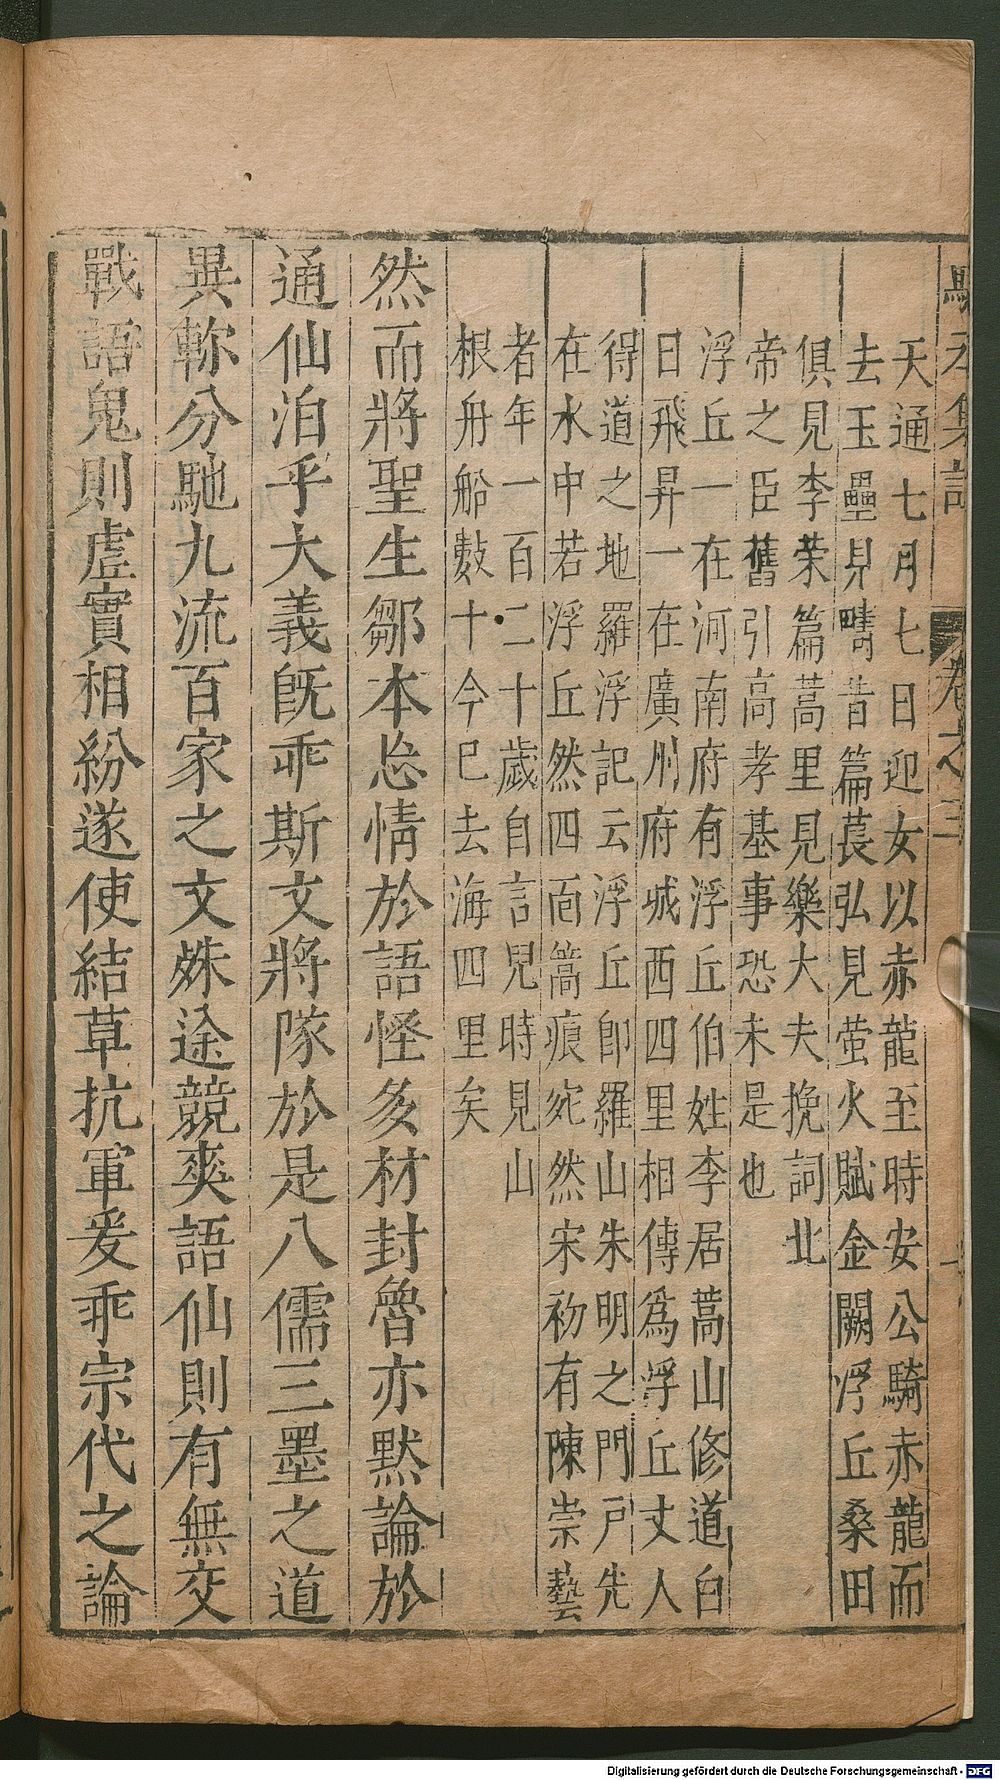 天通七月七日迎女以赤龍至時安公騎赤龍而
去玉壘見疇昔篇萇弘見螢火賦金闕浮丘桑田
俱見李荣篇蒿里見樂大夫挽詞北
帝之臣舊引高孝基事恐未是也
浮丘一在河南府有浮丘伯姓李居蒿山修道白
日飛昇一在廣州府城西四里相傳爲浮丘丈人
得道之地羅浮記云浮丘卽羅山朱明之門戸先
在水中若浮丘然四面篙痕宛然宋初有陳崇藝
者年一百二十歲自言兒時見山
根舟船數十今巳去海四里矣
然而將聖生鄒本忘情於語怪多材封魯亦默論於
通仙泊乎大義既乖斯文將隊於是八儒三墨之道
異軫分馳九流百家之文殊途競爽語仙則有無交
戰語鬼則虛實相紛遂使結草抗軍爰乖宗代之論
卷之三
Digitalisierung gefördert durch die Deutsche Forschungsgemeinschaft - DFG